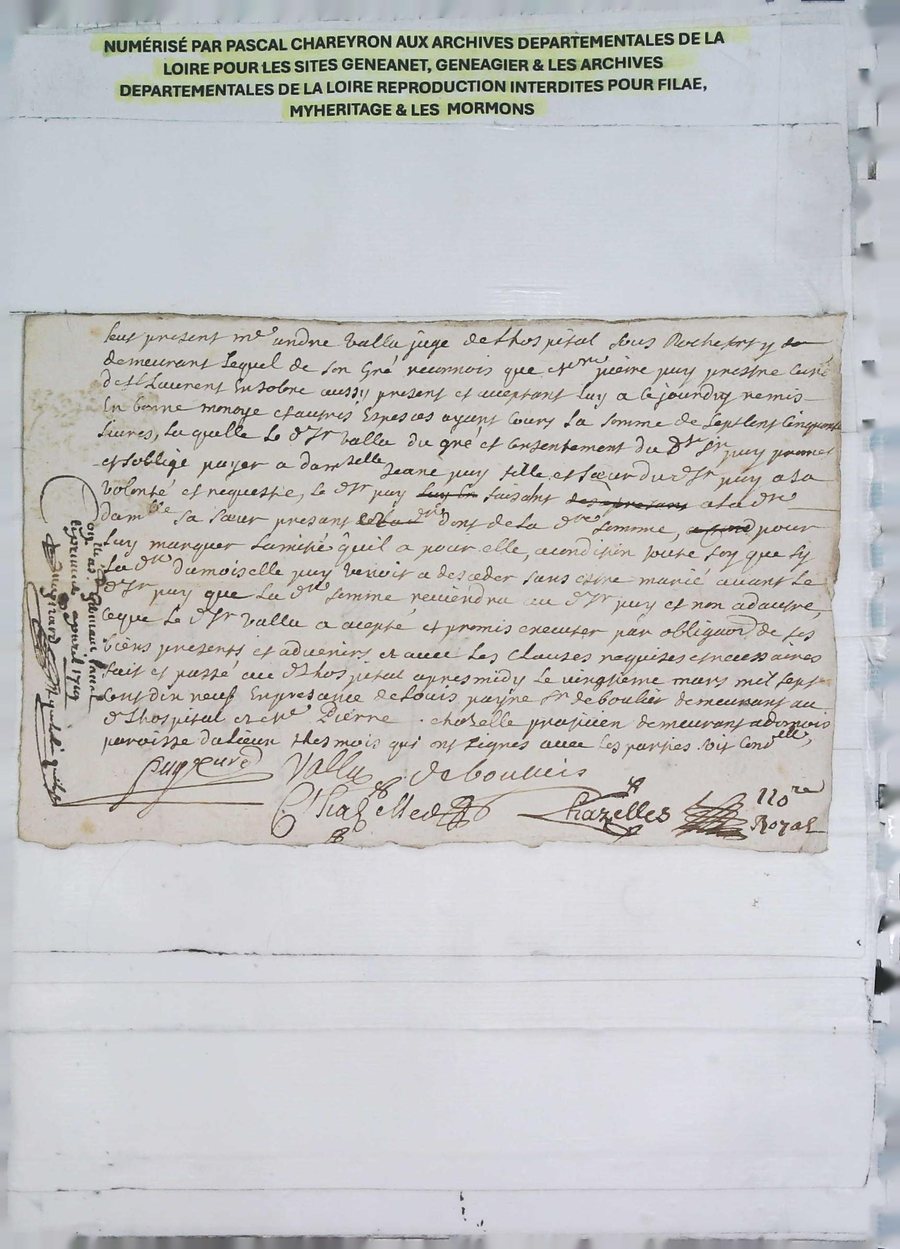 NUMÉRISÉ PAR PASCAL CHAREYRON AUX ARCHIVES DEPARTEMENTALES DE LA
LOIRE POUR LES SITES GENEANET, GENEAGIER & LES ARCHIVES
DEPARTEMENTALES DE LA LOIRE REPRODUCTION INTERDITES POUR FILAE,
MYHERITAGE & LES MORMONS
feut present me andre Valla juge de lhospital sous Rochefort y
demeurant lequel de son gré reconnois que pierre puy prestre curé
de st Laurent En solore aussy present et aceptant luy a cejourdhuy remis
En bonne monoye et autres Especes ayant cours la somme de sept cent cinquante
livres, la quelle le dt sr valla du gré et consentement du dt sr puy promet
et soblige payer a damselle Jeane puy fille et sœur du dt sr puy a sa
volonté et requeste, le dt sr puy faisant a la dte
damlle sa sœur present don de la dte somme, pour
luy marquer lamitié quil a pour elle, a condition que sy
la dte damoiselle puy venoit a deseder sans estre marié avant le
dt sr puy que la dte somme reviendra au dt sr puy et non a dautre,
ceque le dt sr valla a acepté et promis executer par obligaon de ses
biens presents et advenirs et avec les clauses requises et necessaires
fait et passé au dt hospital apres midy le vingtieme mars mil sept
cent dix neuf En presance de Louis payne sr de boulier demeurant au
dt hospital et me Pierre chazelle praticien demeurant
paroisse dalieux tesmois qui ont signes avec les parties soit
Puy curé Valla de bouliers
Chazelles Chazelles nore
Royal
april 1719